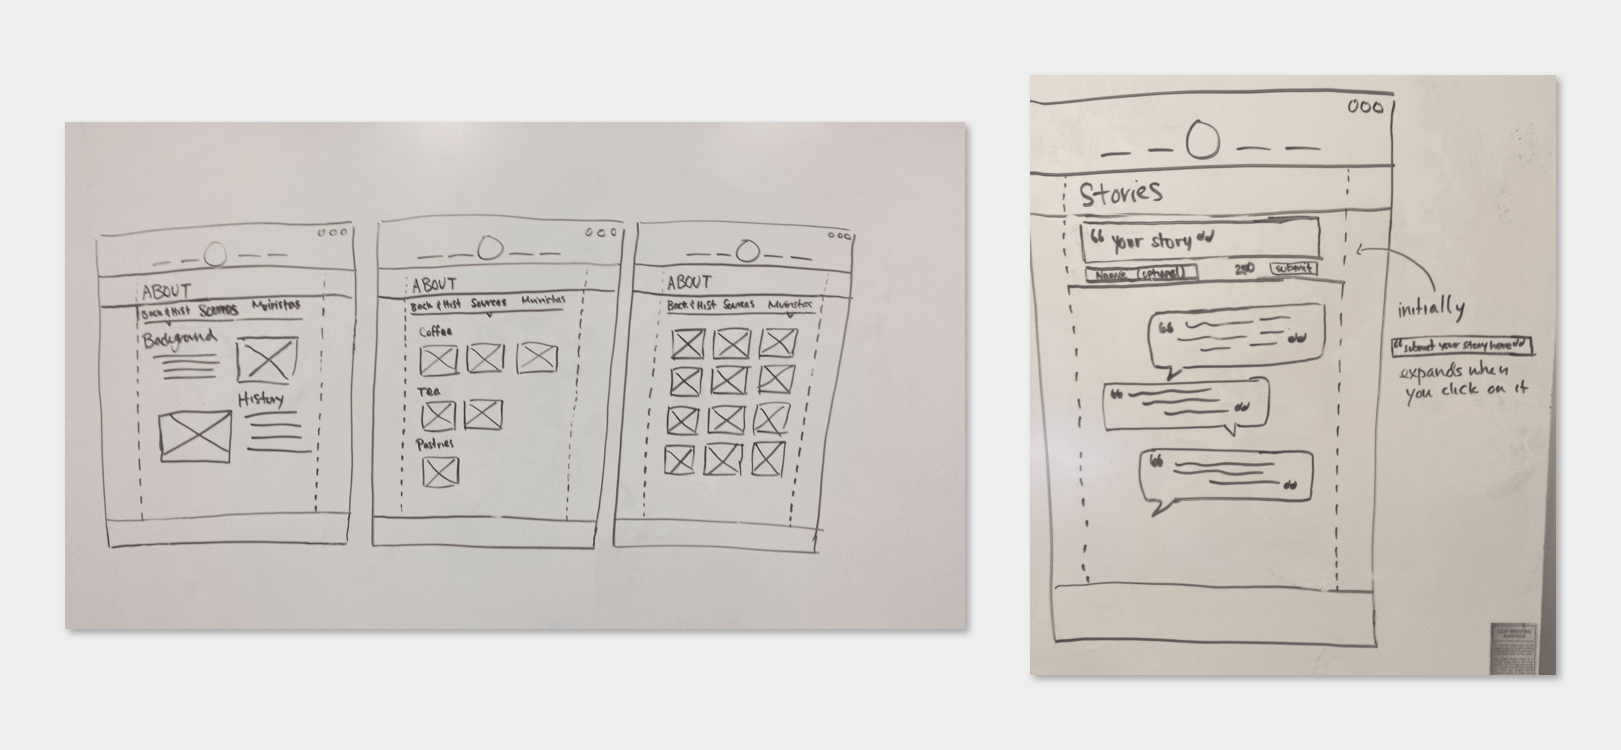 ABOUT
Back & Hist Sources Muiristas
Background
History
ABOUT
Back & Hist Sources Muiristas
Coffee
Tea
Pastries
ABOUT
Back & Hist Sources Muiristas
Stories
“ your story ”
Name (optional) 250 submit
initially
“submit your story here”
expands when
you click on it